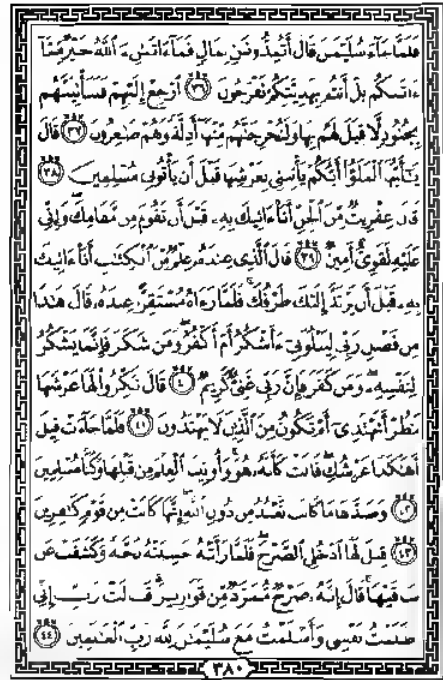 فَلَمَّا جَآءَ سُلَيْمَٰنَ قَالَ أَتُمِدُّونَنِ بِمَالٍ فَمَآ ءَاتَىٰنِۦَ ٱللَّهُ خَيْرٌ مِّمَّآ
ءَاتَىٰكُم بَلْ أَنتُم بِهَدِيَّتِكُمْ تَفْرَحُونَ ٣٦ ٱرْجِعْ إِلَيْهِمْ فَلَنَأْتِيَنَّهُم
بِجُنُودٍ لَّا قِبَلَ لَهُم بِهَا وَلَنُخْرِجَنَّهُم مِّنْهَآ أَذِلَّةً وَهُمْ صَٰغِرُونَ ٣٧ قَالَ
يَٰٓأَيُّهَا ٱلْمَلَؤُا۟ أَيُّكُمْ يَأْتِينِى بِعَرْشِهَا قَبْلَ أَن يَأْتُونِى مُسْلِمِينَ ٣٨
قَالَ عِفْرِيتٌ مِّنَ ٱلْجِنِّ أَنَا۠ ءَاتِيكَ بِهِۦ قَبْلَ أَن تَقُومَ مِن مَّقَامِكَ وَإِنِّى
عَلَيْهِ لَقَوِىٌّ أَمِينٌ ٣٩ قَالَ ٱلَّذِى عِندَهُۥ عِلْمٌ مِّنَ ٱلْكِتَٰبِ أَنَا۠ ءَاتِيكَ
بِهِۦ قَبْلَ أَن يَرْتَدَّ إِلَيْكَ طَرْفُكَ فَلَمَّا رَءَاهُ مُسْتَقِرًّا عِندَهُۥ قَالَ هَٰذَا
مِن فَضْلِ رَبِّى لِيَبْلُوَنِىٓ ءَأَشْكُرُ أَمْ أَكْفُرُ وَمَن شَكَرَ فَإِنَّمَا يَشْكُرُ
لِنَفْسِهِۦ وَمَن كَفَرَ فَإِنَّ رَبِّى غَنِىٌّ كَرِيمٌ ٤٠ قَالَ نَكِّرُوا۟ لَهَا عَرْشَهَا
نَنظُرْ أَتَهْتَدِىٓ أَمْ تَكُونُ مِنَ ٱلَّذِينَ لَا يَهْتَدُونَ ٤١ فَلَمَّا جَآءَتْ قِيلَ
أَهَٰكَذَا عَرْشُكِ قَالَتْ كَأَنَّهُۥ هُوَ وَأُوتِينَا ٱلْعِلْمَ مِن قَبْلِهَا وَكُنَّا مُسْلِمِينَ
٤٢ وَصَدَّهَا مَا كَانَت تَّعْبُدُ مِن دُونِ ٱللَّهِ إِنَّهَا كَانَتْ مِن قَوْمٍ كَٰفِرِينَ
٤٣ قِيلَ لَهَا ٱدْخُلِى ٱلصَّرْحَ فَلَمَّا رَأَتْهُ حَسِبَتْهُ لُجَّةً وَكَشَفَتْ عَن
سَاقَيْهَا قَالَ إِنَّهُۥ صَرْحٌ مُّمَرَّدٌ مِّن قَوَارِيرَ قَالَتْ رَبِّ إِنِّى
ظَلَمْتُ نَفْسِى وَأَسْلَمْتُ مَعَ سُلَيْمَٰنَ لِلَّهِ رَبِّ ٱلْعَٰلَمِينَ ٤٤
٣٨٠